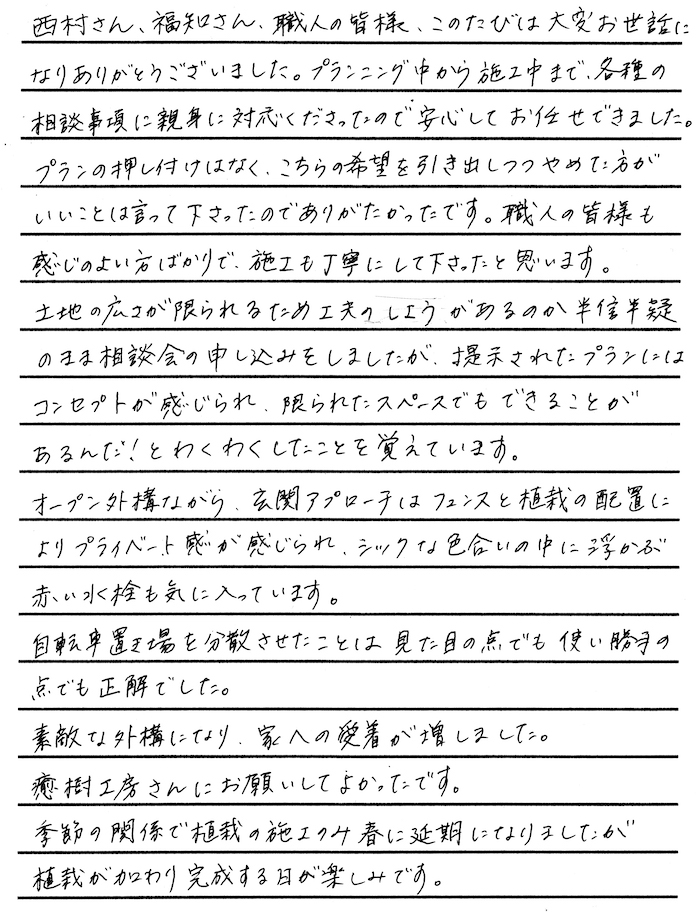 西村さん、福知さん、職人の皆様、このたびは大変お世話に
なりありがとうございました。プランニング中から施工中まで、各種の
相談事項に親身に対応くださったので安心してお任せできました。
プランの押し付けはなく、こちらの希望を引き出しつつやめた方が
いいことは言って下さったのでありがたかったです。職人の皆様も
感じのよい方ばかりで、施工も丁寧にして下さったと思います。
土地の広さが限られるため工夫のしようがあるのか半信半疑
のまま相談会の申し込みをしましたが、提示されたプランには
コンセプトが感じられ、限られたスペースでもできることが
あるんだ!とわくわくしたことを覚えています。
オープン外構ながら、玄関アプローチはフェンスと植栽の配置に
よりプライベート感が感じられ、シックな色合いの中に浮かぶ
赤い水栓も気に入っています。
自転車置き場を分散させたことは見た目の点でも使い勝手の
点でも正解でした。
素敵な外構になり、家への愛着が増しました。
癒樹工房さんにお願いしてよかったです。
季節の関係で植栽の施工のみ春に延期になりましたが
植栽が加わり完成する日が楽しみです。